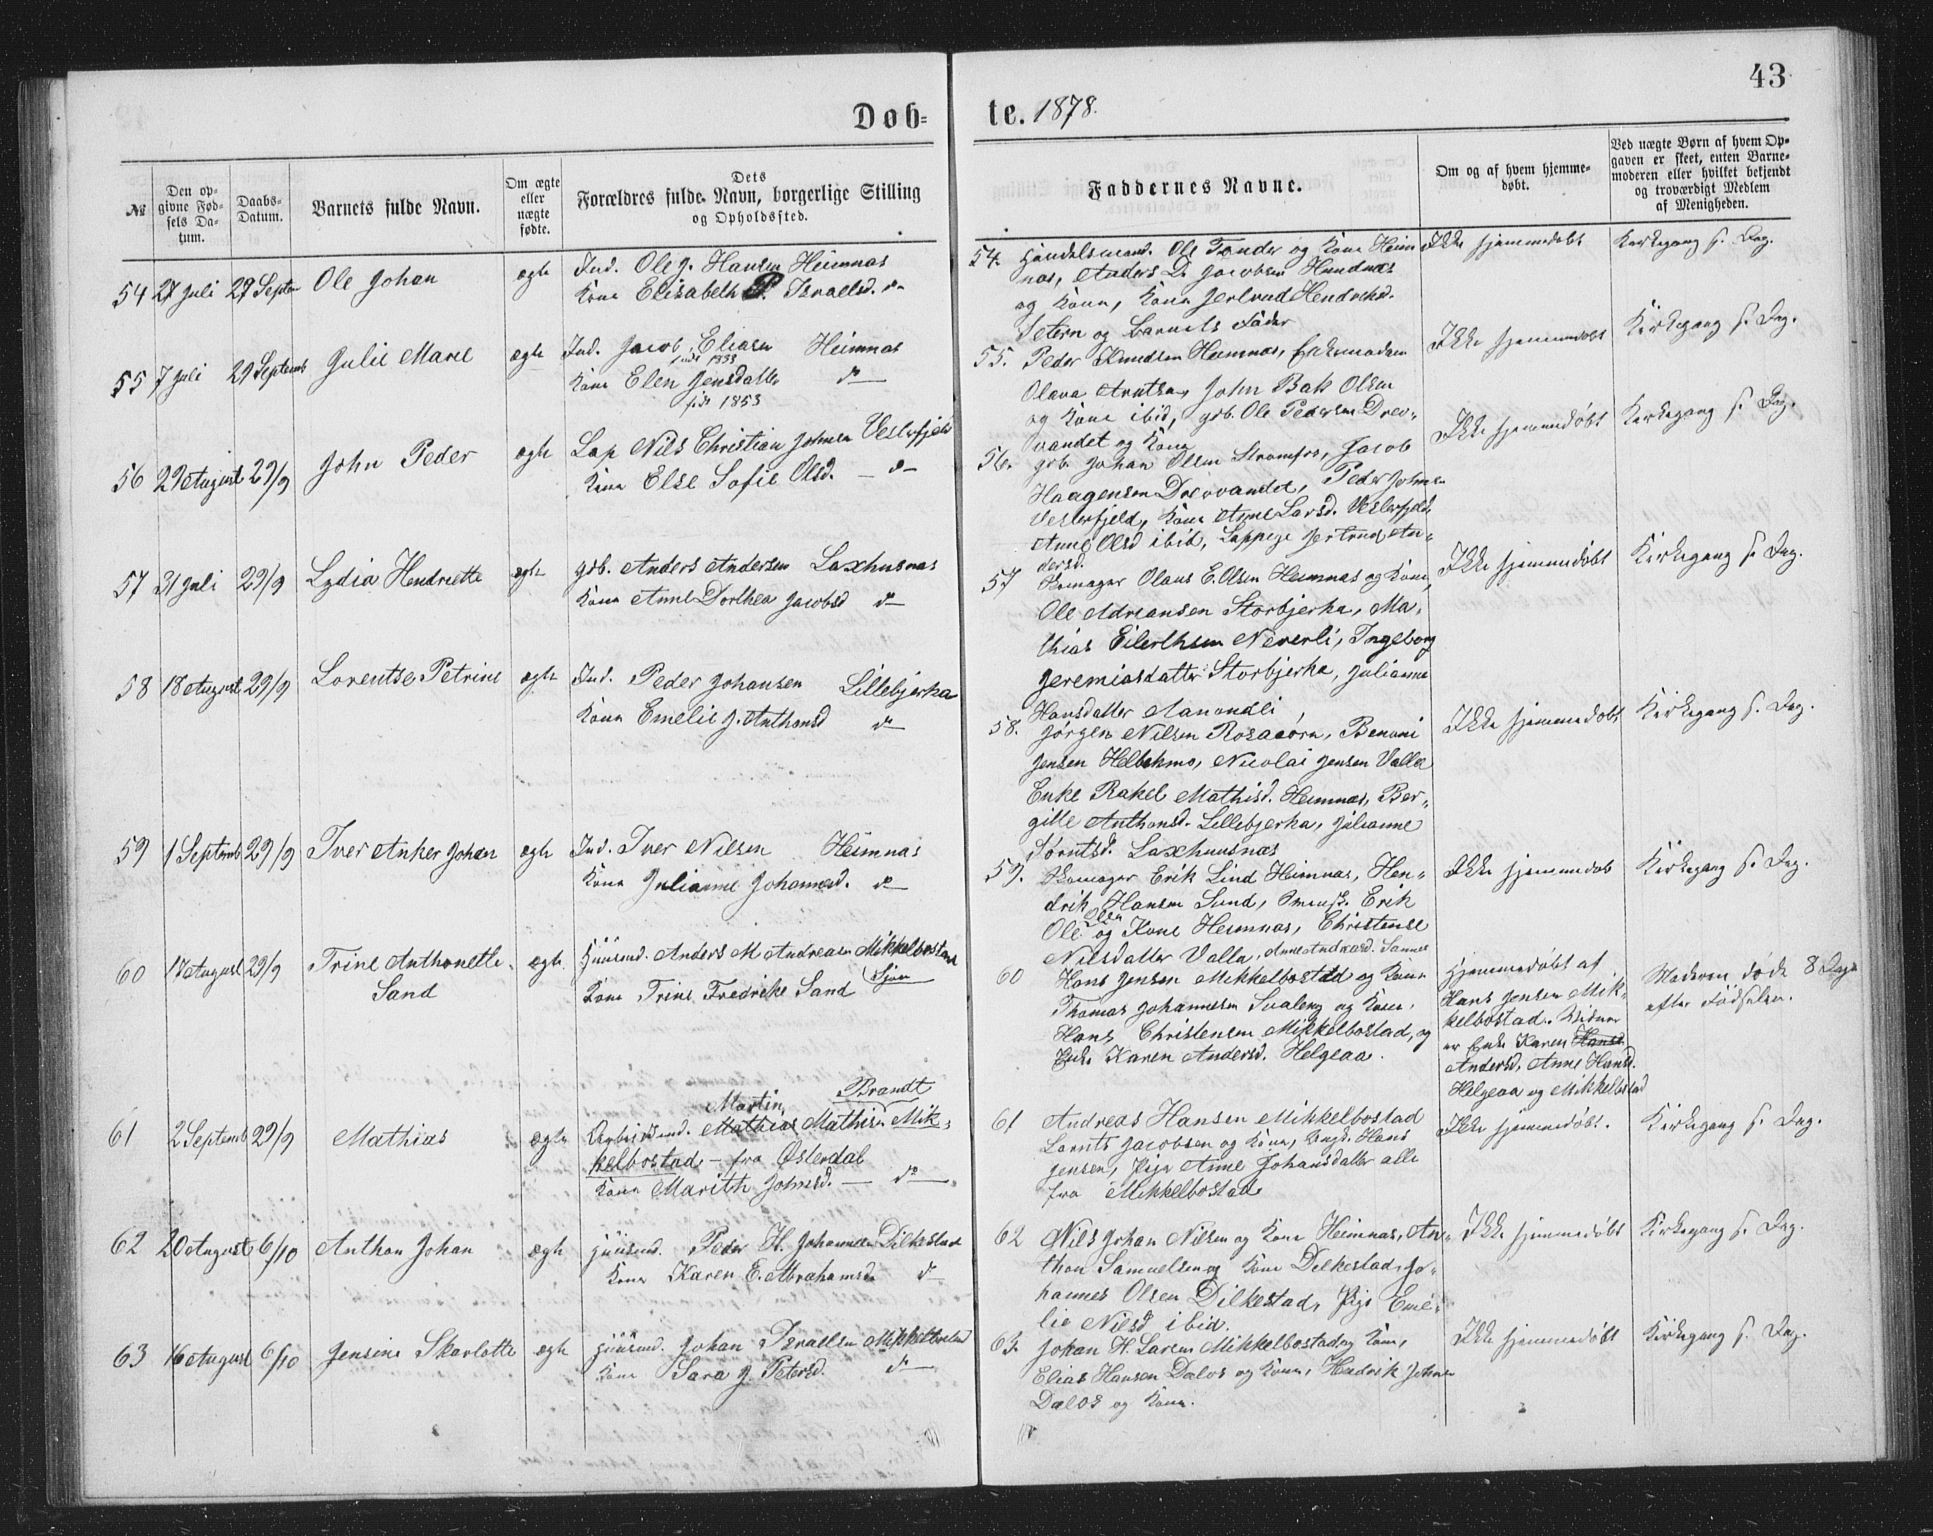 43
Døb-
te. 1878.
№
Den opgivne Fødsels Datum.
Daabs-Datum.
Barnets fulde Navn.
Om ægte eller nægte fødte.
Dets Forældres fulde Navn, borgerlige Stilling og Opholdssted.
Faddernes Navne.
Om og af hvem hjemmedøbt.
Ved nægte Børn af hvem Opgaven er skeet, enten Barnemoderen eller hvilket bekjendt og troværdigt Medlem af Menigheden.
54 27 Juli 29 Septem Ole Johan ægte Ind. Ole J. Hansen Heimnas
Kone Elisabeth P. Israelsd. do
54. Handelsmand Ole Tander og Kone Heim
nas, Anders D. Jacobsen Hundnæs
og Kone, Kone Jertrud Hendriksd.
Setern og Barnets Fader
Ikke hjemmedøbt
Kirkegang s. Dag.
55 7 Juli 29 Septemb Julie Marie ægte Ind. Jacob Eliasen Heimnas
født 1853
Kone Elen Jensdatter do
født 1853
55. Peder Knudsen Heimnas,
Olava Arntsen, John Bak Olsen
og Kone ibid, gbr. Ole Pedersen Drev-
vandet og Kone
Ikke hjemmedøbt
Kirkegang s. Dag.
56 29 August 29/9 John Peder ægte Lap Nils Christian Johnsen Vesterfjeld
Kone Else Sofie Olsd. — do
56. gbr. Johan Olsen Stromfors, Jacob
Haagensen Drevvandet, Peder Johnsen
Vesterfjeld, Kone Anne Larsd. Vesterfjeld,
Anne Olsd ibid, Lappige Jertrud An-
dersd.
Ikke hjemmedøbt
Kirkegang s. Dag.
57 31 Juli 29/9 Lydia Hendriette ægte gbr. Anders Andersen Laxhusnas
Kone Anne Dorthea Jacobsd do
57 Skomager Olaus E. Olsen Heimnas og Kone,
Ole Adriansen Storbjerka, Ma-
thias Eilerthsen Neverli, Ingeborg
Jeremiasdatter Storbjerka, Julianne
Hansdatter Aanondli
Ikke hjemmedøbt
Kirkegang s. Dag.
58 18 August 29/9 Lorentse Petrine ægte Ind. Peder Johansen Lillebjerka
Kone Emelie J. Anthonsd do
58. Jørgen Nilsen Rosaæøra, Benoni
Jensen Helbekmo, Nicolai Jensen Valla
Enke Rakel Mathisd. Heimnas, Ber-
gitte Anthonsd. Lillebjerka, Julianne
Sørntsd. Laxhuusnæs
Ikke hjemmedøbt
Kirkegang s. Dag.
59 1 Septemb 29/9 Iver Anker Johan ægte Ind. Iver Nilsen Heimnas
Kone Julianne Johannesd. do
59. Skomager Erik Lind Heimnas, Hen-
drik Hansen Sund, Erik
Ole Olsen og Kone Heimnas, Christense
Nilsdatter Valla, Anne Andreasd.
Ikke hjemmedøb
Kirkegang s. Dag.
60 17 August 29/9 Trine Anthonette ægte Huusmd. Anders M Andreasen Mikkelbostad
Sand Kone Trine Fredrikke Sand (Sjøen
60 Hans Jensen Mikkelbostad og Kone
Thomas Johannesen Svaleng og Kone,
Hans Christensen Mikkelbostad, og
Enke Karen Andersd. Helgeaa.
Hjemmedøbt af
Hans Jensen Mik-
kelbostad. Vidner
er Enke Karen Hansd.
Andersd, Anne Hansd.
Helgeaa og Mikkelbostad
Moderen døde 8 Dage
efter Fødselen.
61 2 Septemb 29/9 Mathias ægte Arbeidsmd. Martin Mathias Mathisen Brandt Mik-
kelbostad, — fra Østerdal
Kone Marith Johnsd. — do
61 Andreas Hansen Mikkelbostad
Lornts Jacobsen og Kone, Ungk. Hans
Jensen, Pige Anne Johansdatter alle
fra Mikkelbostad
Ikke hjemmedøbt.
Kirkegang s. Dag.
62 20 August 6/10 Anthon Johan ægte Huusmd. Peder H. Johannesen Dilkestad
Kone Karen E. Abrahamsd do
62 Nils Johan Nilsen og Kone Heimnas, An-
thon Samuelsen og Kone Dilkestad, Jo-
hannes Olsen Dilkestad, Pige Eme-
lie Nilsd ibid.
Ikke hjemmedøbt
Kirkegang s. Dag.
63 16 August 6/10 Jensine Skarlotte ægte Huusmd. Johan Israelsen Mikkelbostad
Kone Sara J. Petersd. do
63. Johan H. Larsen Mikkelbostad og Kone,
Elias Hansen Dalos og Kone, Hendrik Johnsen
Dalos og Kone.
Ikke hjemmedøbt
Kirkegang s. Dag.